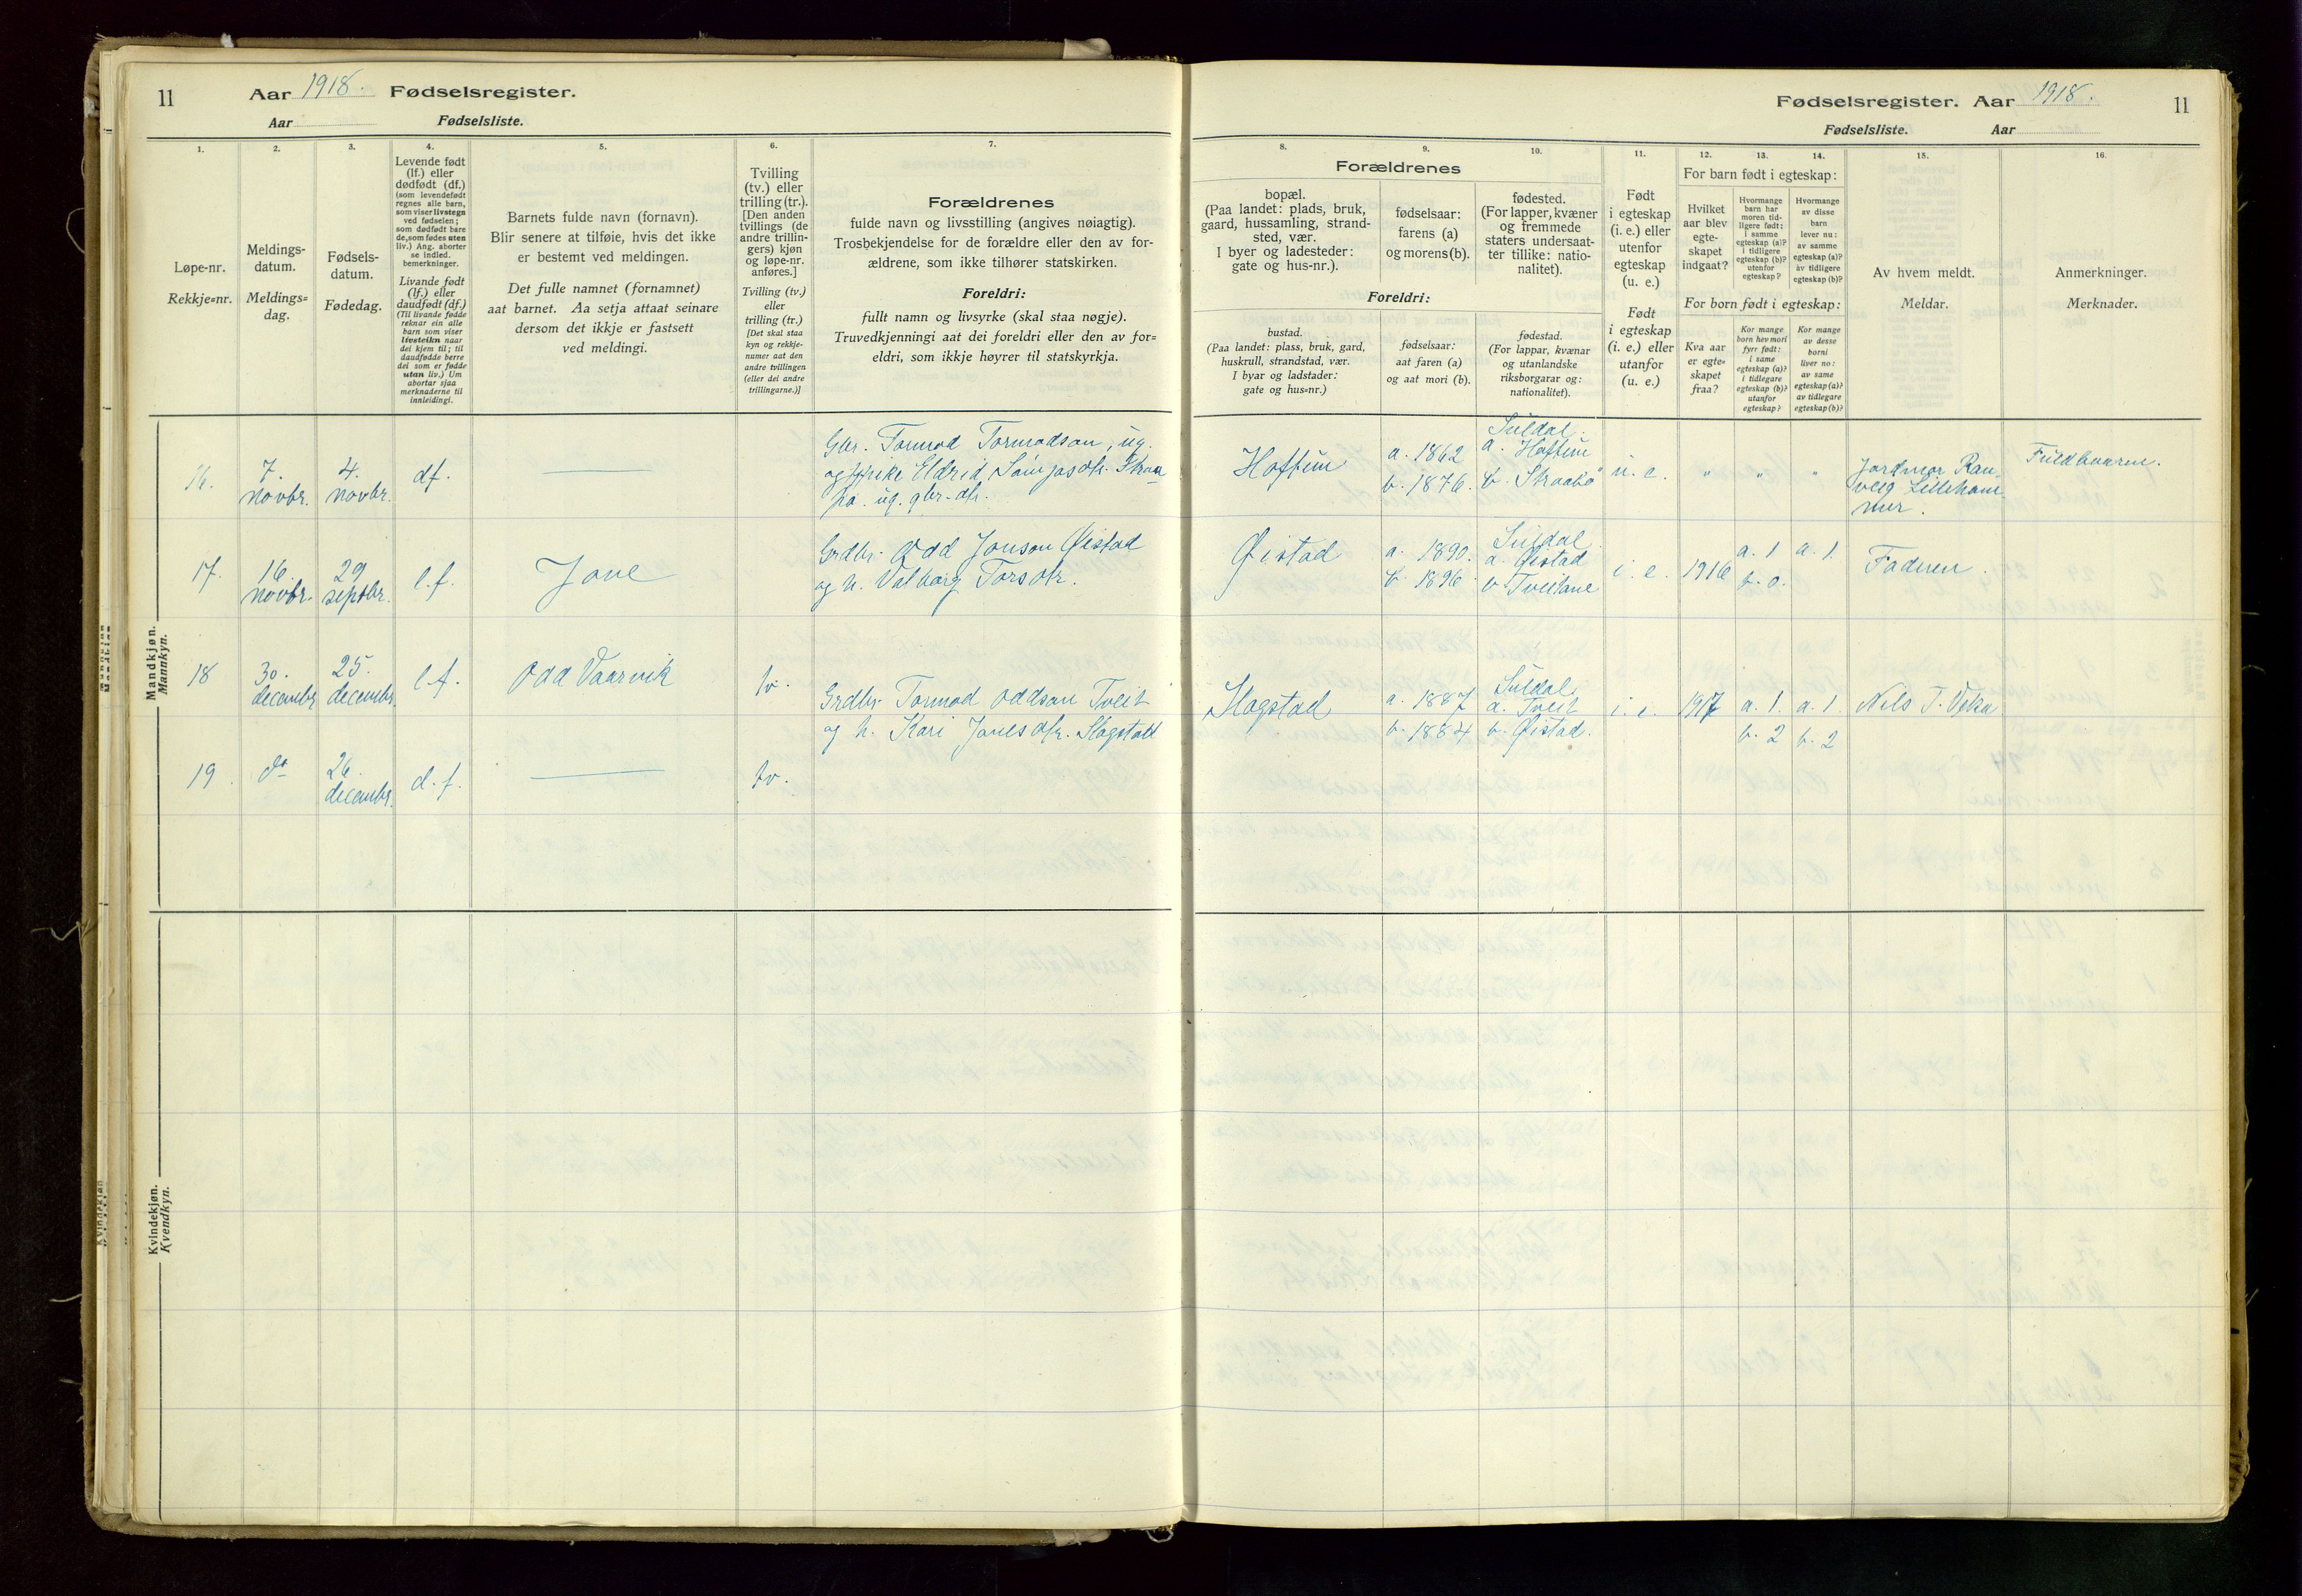 11
Aar 1918. Fødselsregister.
Aar Fødselsliste.
1.
2.
3.
4.
5.
6.
7.
Løpe-nr.
Rekkje=nr.
Meldings-
datum.
Meldings=
dag.
Fødsels-
datum.
Fødedag.
Levende født
(lf.) eller
dødfødt (df.)
(som levendefødt
regnes alle barn,
som viser livstegn
ved fødselen;
som dødfødt bare
de, som fødes uten
liv.) Ang. aborter
se indled.
bemerkninger.
Livande født
(lf.) eller
daudfødt (df.)
(Til livande fødde
reknar ein alle
barn som viser
livsteikn naar
dei kjem til; til
daudfødde berre
dei som er fødde
utan liv.) Um
abortar sjaa
merknaderne til
innleidingi.
Barnets fulde navn (fornavn).
Blir senere at tilføie, hvis det ikke
er bestemt ved meldingen.
Det fulle namnet (fornamnet)
aat barnet. Aa setja attaat seinare
dersom det ikkje er fastsett
ved meldingi.
Tvilling
(tv.) eller
trilling (tr.).
[Den anden
tvillings (de
andre trillin-
gers) kjøn
og løpe-nr.
anføres.]
Tvilling (tv.)
eller
trilling (tr.)
[Det skal staa
kyn og rekkje-
numer aat den
andre tvillingen
(eller dei andre
trillingarne.)]
Forældrenes
fulde navn og livsstilling (angives nøiagtig).
Trosbekjendelse for de forældre eller den av for-
ældrene, som ikke tilhører statskirken.
Foreldri:
fullt namn og livsyrke (skal staa nøgje).
Truvedkjenningi aat dei foreldri eller den av for=
eldri, som ikkje høyrer til statskyrkja.
Mandkjøn.
Mannkyn.
16.
7.
novbr.
4.
novbr.
df.
Gbr. Tormod Tormodson, ug.
Eldrid
ug. gbr-dtr.
17.
16.
novbr.
29
septbr.
l.f.
Jone
Grdbr. Odd Jonson Øistad
og h. Valborg Torsdtr.
18
30.
decembr
25.
decembr.
l.f.
Odd Vaarvik
tv.
Grdbr. Tormod Oddson Tveit
og h. Kari Jonesdtr. Slagstad
19
do
26.
decembr.
d.f.
tv.
Kvindekjøn.
Kvendkyn.
Fødselsregister. Aar 1918.
11
Fødselsliste. Aar
8.
9.
10.
11.
12.
13.
14.
15.
16.
Forældrenes
bopæl.
(Paa landet: plads, bruk,
gaard, hussamling, strand-
sted, vær.
I byer og ladesteder:
gate og hus-nr.).
fødselsaar:
farens (a)
og morens (b).
fødested.
(For lapper, kvæner
og fremmede
staters undersaat-
ter tillike: natio-
nalitet).
Foreldri:
bustad.
(Paa landet: plass, bruk, gard,
huskrull, strandstad, vær.
I byar og ladstader:
gate og hus=nr.)
fødselsaar:
aat faren (a)
og aat mori (b).
fødestad.
(For lappar, kvænar
og utanlandske
riksborgarar og:
nationalitet).
Født
i egteskap
(i. e.) eller
utenfor
egteskap
(u. e.)
Født
i egteskap
(i. e.) eller
utanfor
(u. e.)
For barn født i egteskap:
Hvilket
aar blev
egte-
skapet
indgaat?
Hvormange
barn har
moren tid-
ligere født:
i samme
egteskap (a)?
i tidligere
egteskap (b)?
utenfor
egteskap?
Hvormange
av disse
barn
lever nu:
av samme
egteskap (a)?
av tidligere
egteskap (b)?
For born født i egteskap:
Kva aar
er egte=
skapet
fraa?
Kor mange
born hev mori
fyrr født:
i same
egteskap (a)?
i tidlegare
egteskap (b)?
utanfor
egteskap?
Kor mange
av desse
borni
liver no:
av same
egteskap (a)?
av tidlegare
egteskap (b)?
Av hvem meldt.
Meldar.
Anmerkninger.
Merknader.
a. 1862
b. 1876.
Suldal.
b. Straabø
u. e.
"
"
"
Jordmor Ran
veig Lilleham
mer.
Fuldbaaren.
Øistad
a. 1890.
b. 1896.
Suldal.
a. Øistad
b. Tveitane
i. e.
1916
a. 1
b. 0.
a. 1.
Faderen.
Slagstad
a. 1887
b. 1884
Suldal.
a. Tveit
b. Øistad.
i. e.
1917
a. 1.
b. 2
a. 1.
b. 2
Nils T.